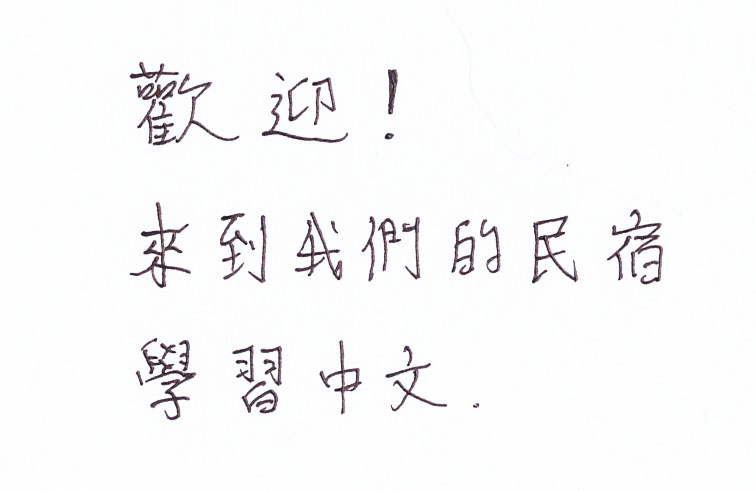 歡迎!
來到我們的民宿
學習中文.